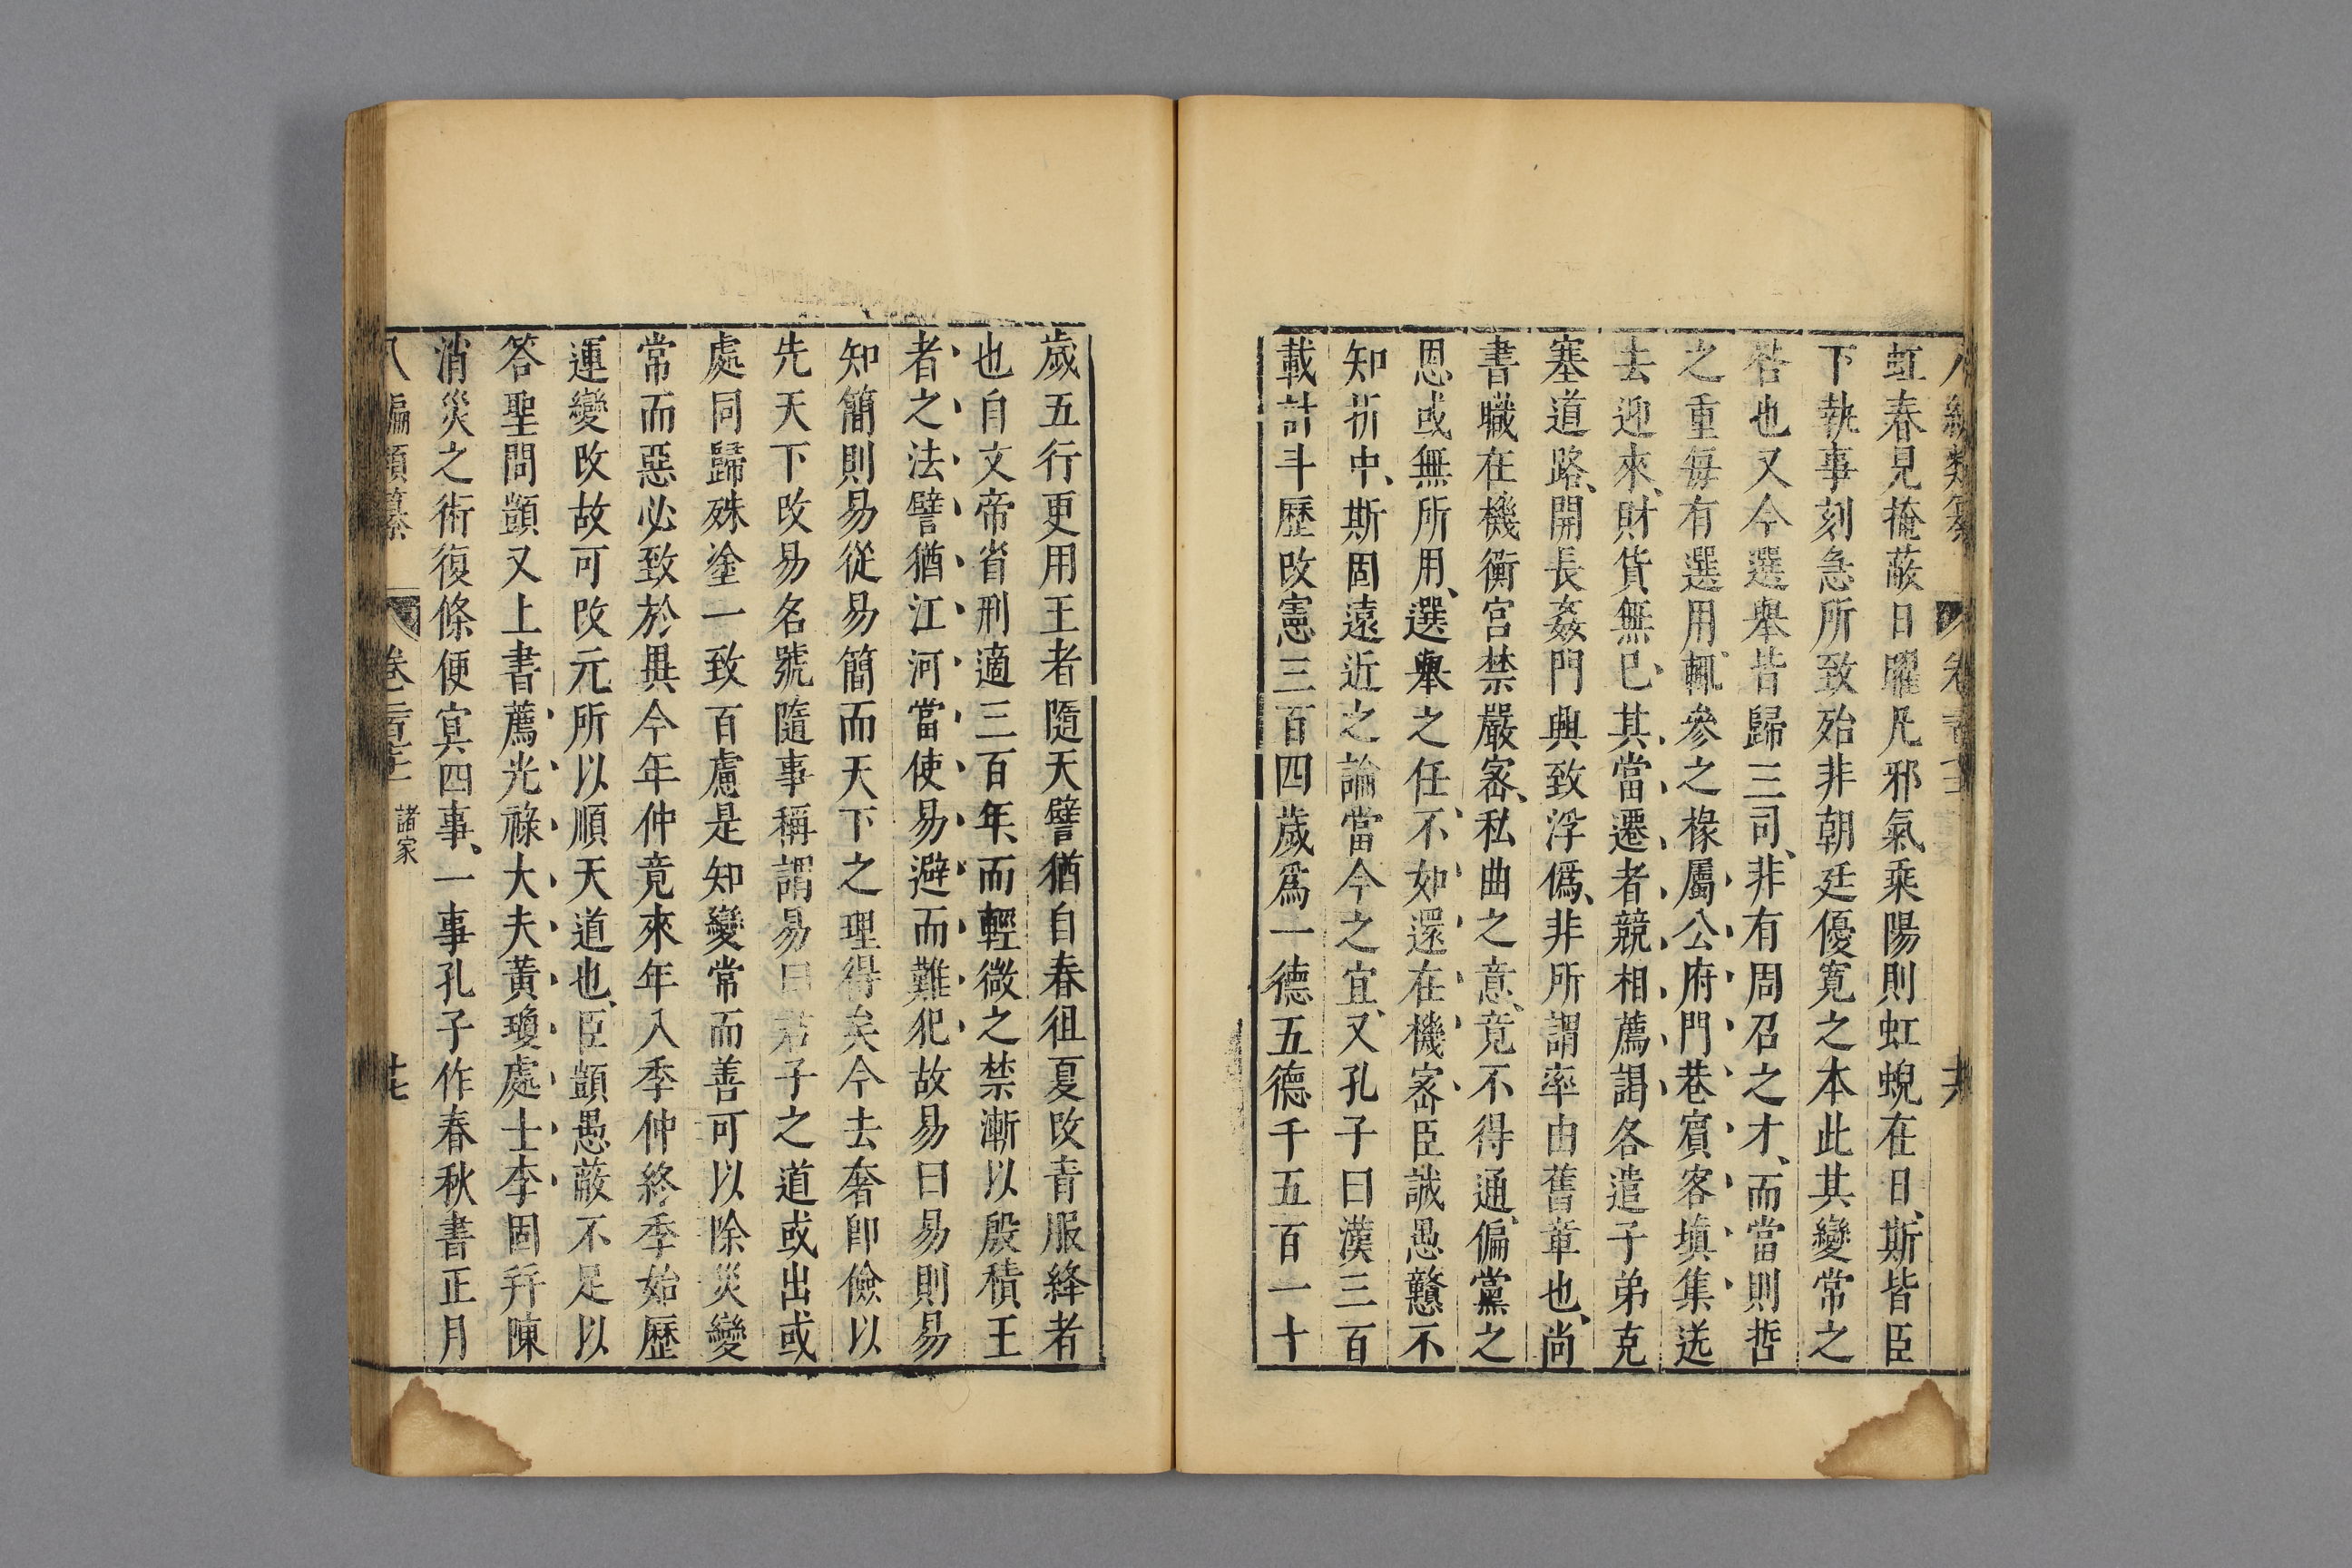 虹春見掩蔽日曜凡邪氣乘陽則虹蜺在日斯皆臣
下執事刻急所致殆非朝廷優寛之本此其變常之
咎也又今選舉皆歸三司、非有周召之才、而當則哲
之重每有選用、輒參之掾屬公府門巷賓客填集送
去迎來、財貨無已其當遷者競相薦謁各遣子弟充
塞道路、開長姦門興致浮僞、非所謂率由舊章也、尚
書職在機衡宮禁嚴密、私曲之意、竟不得通、偏黨之
恩或無所用、選舉之任不如還在機密臣誠愚戇不
知折中、斯固遠近之論當今之宜、又孔子曰漢三百
載計斗歷改憲三百四歲爲一德五德千五百一十
歲五行更用王者隨天譬猶自春徂夏改青服絳者
也自文帝省刑適三百年、而輕微之禁漸以殷積、王
者之法譬猶江河當使易避而難犯故易曰易則易
知簡則易從易簡而天下之理得矣今去奢卽儉以
先天下改易名號隨事稱謂易曰君子之道或出或
處同歸殊塗一致百慮是知變常而善可以除災變
常而惡必致於異今年仲竟來年入季仲終季始歷
運變改故可改元所以順天道也、臣顗愚蔽不足以
答聖問顗又上書薦光祿大夫黃瓊處士李固幷陳
消災之術復條便宜四事、一事孔子作春秋書正月
八編類纂 卷 諸家 十七